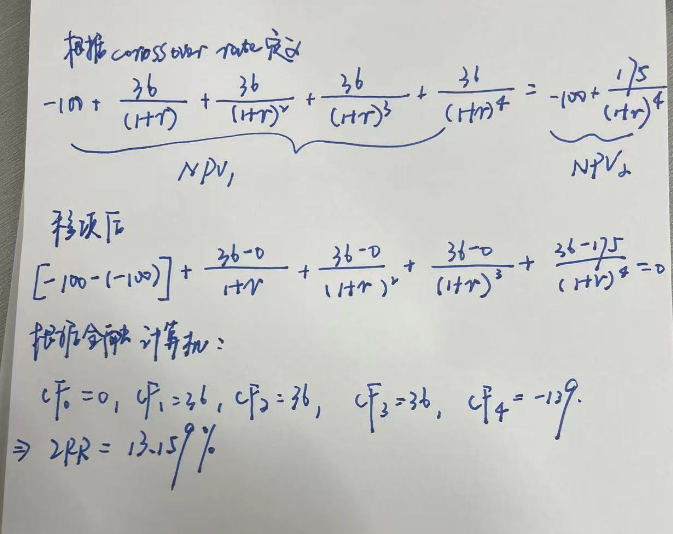 根据crossover rate定义
-100 + 36/(1+r) + 36/(1+r)² + 36/(1+r)³ + 36/(1+r)⁴ = -100 + 175/(1+r)⁴
NPV₁ NPV₂
移项后
[-100-(-100)] + 36-0/1+r + 36-0/(1+r)² + 36-0/(1+r)³ + 36-175/(1+r)⁴ = 0
根据金融计算机:
CF₀=0, CF₁=36, CF₂=36, CF₃=36, CF₄=-139.
⇒ IRR = 13.159%